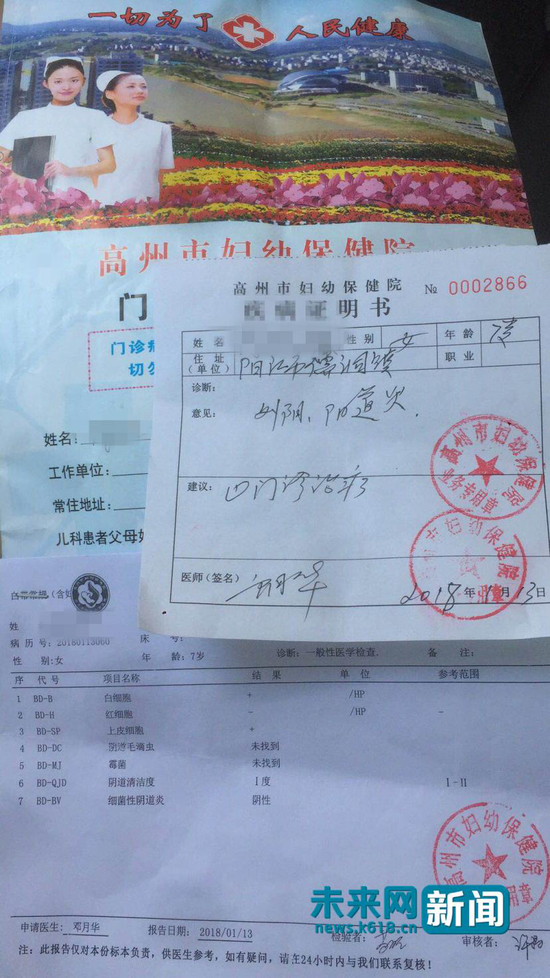 一切为了 人民健康
高州市妇幼保健院
门
门诊病
切勿
姓名:
工作单位:
常住地址:
儿科患者父母姓
高州市妇幼保健院
疾病证明书
№ 0002866
姓名 性别 女 年龄
住址
(单位) 职业
诊断:
意见: 外阴、阴道炎.
建议: 门诊治疗
医师(签名)
2018年1月13日
高州市妇幼保健院
业务专用章
白带常规
姓
病历号:20180113060 床号:
性别:女 年龄:7岁 诊断:一般性医学检查. 备注:
序 代号 项目名称 结果 单位 参考范围
1 BD-B 白细胞 + /HP
2 BD-H 红细胞 - /HP
3 BD-SP 上皮细胞 +
4 BD-DC 阴道毛滴虫 未找到
5 BD-MJ 霉菌 未找到
6 BD-QJD 阴道清洁度 I度 I-II
7 BD-BV 细菌性阴道炎 阴性
高州市妇幼保健院
申请医生: 邓月华 报告日期: 2018/01/13 检验者: 审核者:
注:此报告仅对本份标本负责,供医生参考,如有疑问,请在24小时内与我们联系复核!
未来网 新闻
www.k618.cn